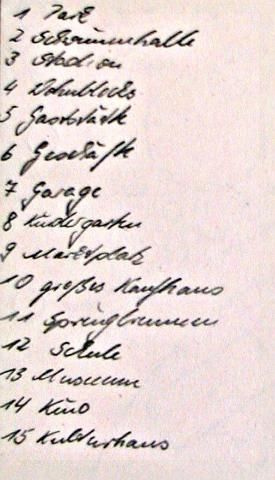 1 Park
2 Schwimmhalle
3 Stadion
4 Wohnblocks
5 Gaststätte
6 Geschäfte
7 Garage
8 Kindergarten
9 Marktplatz
10 großes Kaufhaus
11 Springbrunnen
12 Schule
13 Museum
14 Kino
15 Kulturhaus